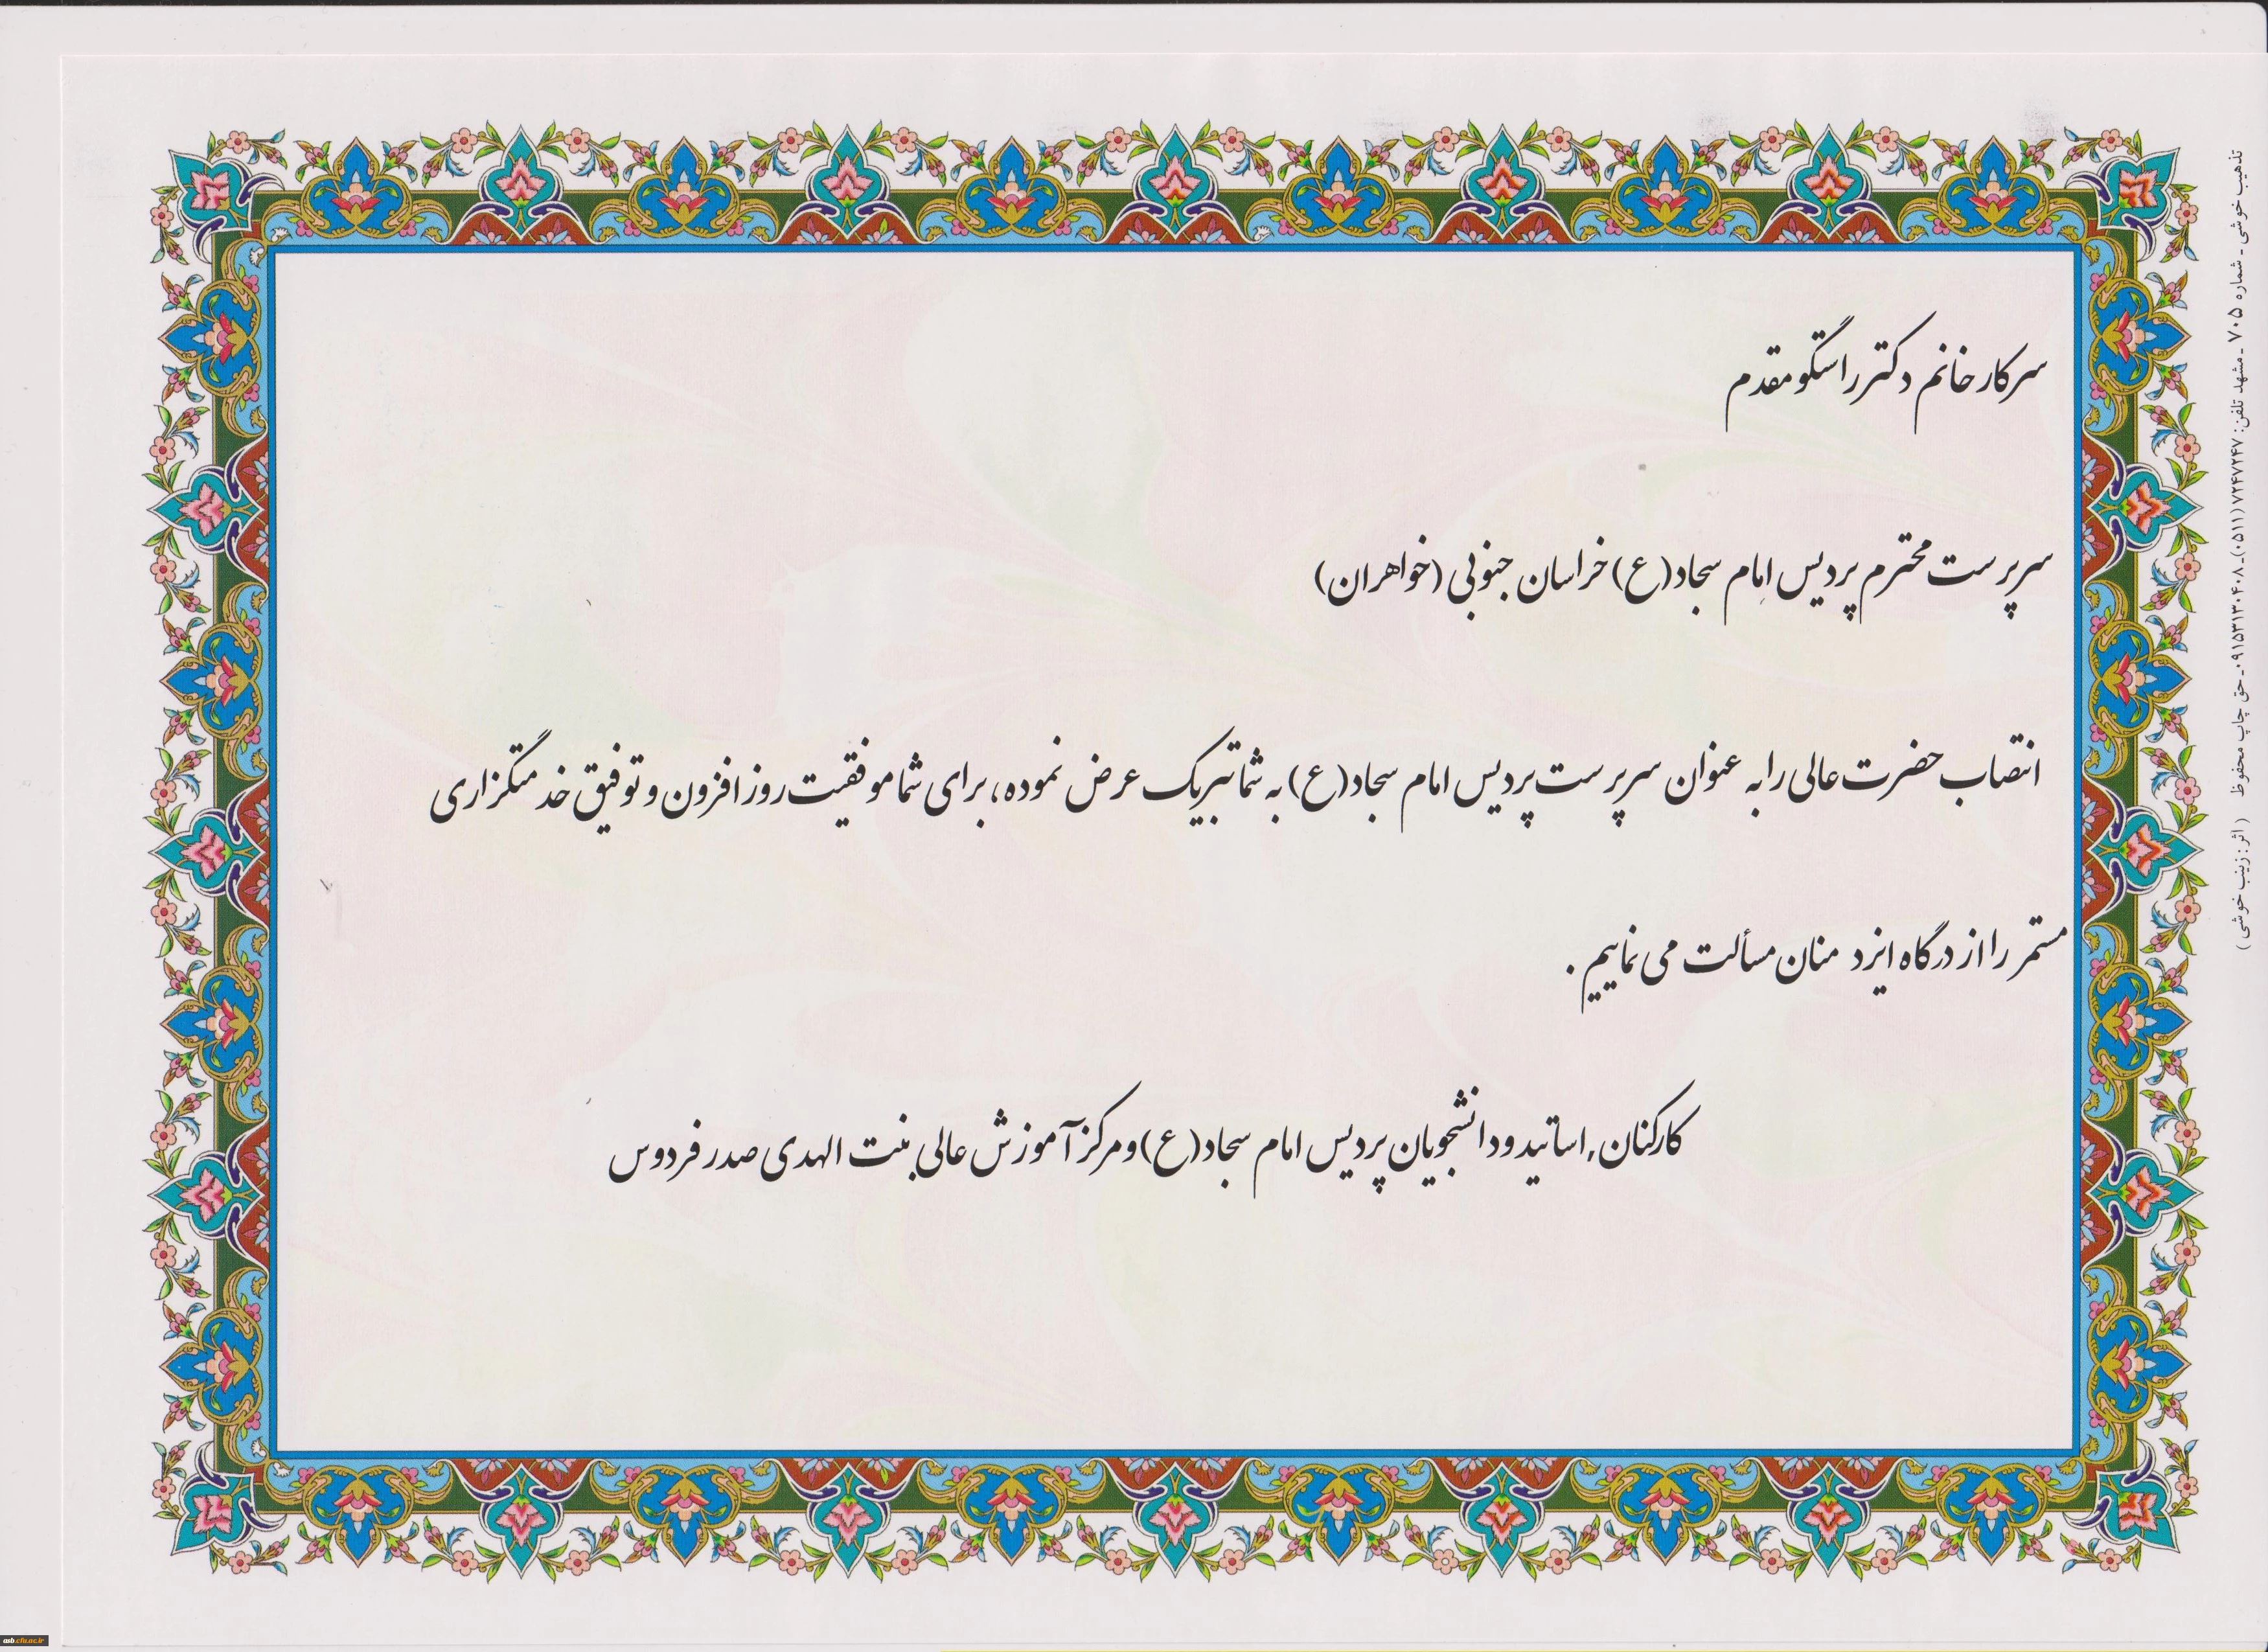 سرکار خانم دکتر راستگو مقدم
سرپرست محترم پردیس امام سجاد(ع) خراسان جنوبی (خواهران)
انتصاب حضرت عالی را به عنوان سرپرست پردیس امام سجاد(ع) به شما تبریک عرض نموده، برای شما موفقیت روز افزون و توفیق خدمتگزاری
مستمر را از درگاه ایزد منان مسألت می نماییم .
کارکنان, اساتید و دانشجویان پردیس امام سجاد(ع) و مرکز آموزش عالی بنت الهدی صدر فردوس
تذهیب خوشی ـ شماره ۷۰۵ ـ مشهد تلفن: ۷۲۴۷۲۴۷ (۰۵۱۱)ـ۰۹۱۵۳۱۳۰۴۰۸ـ حق چاپ محفوظ (اثر: زینب خوشی)
asb.cfu.ac.ir